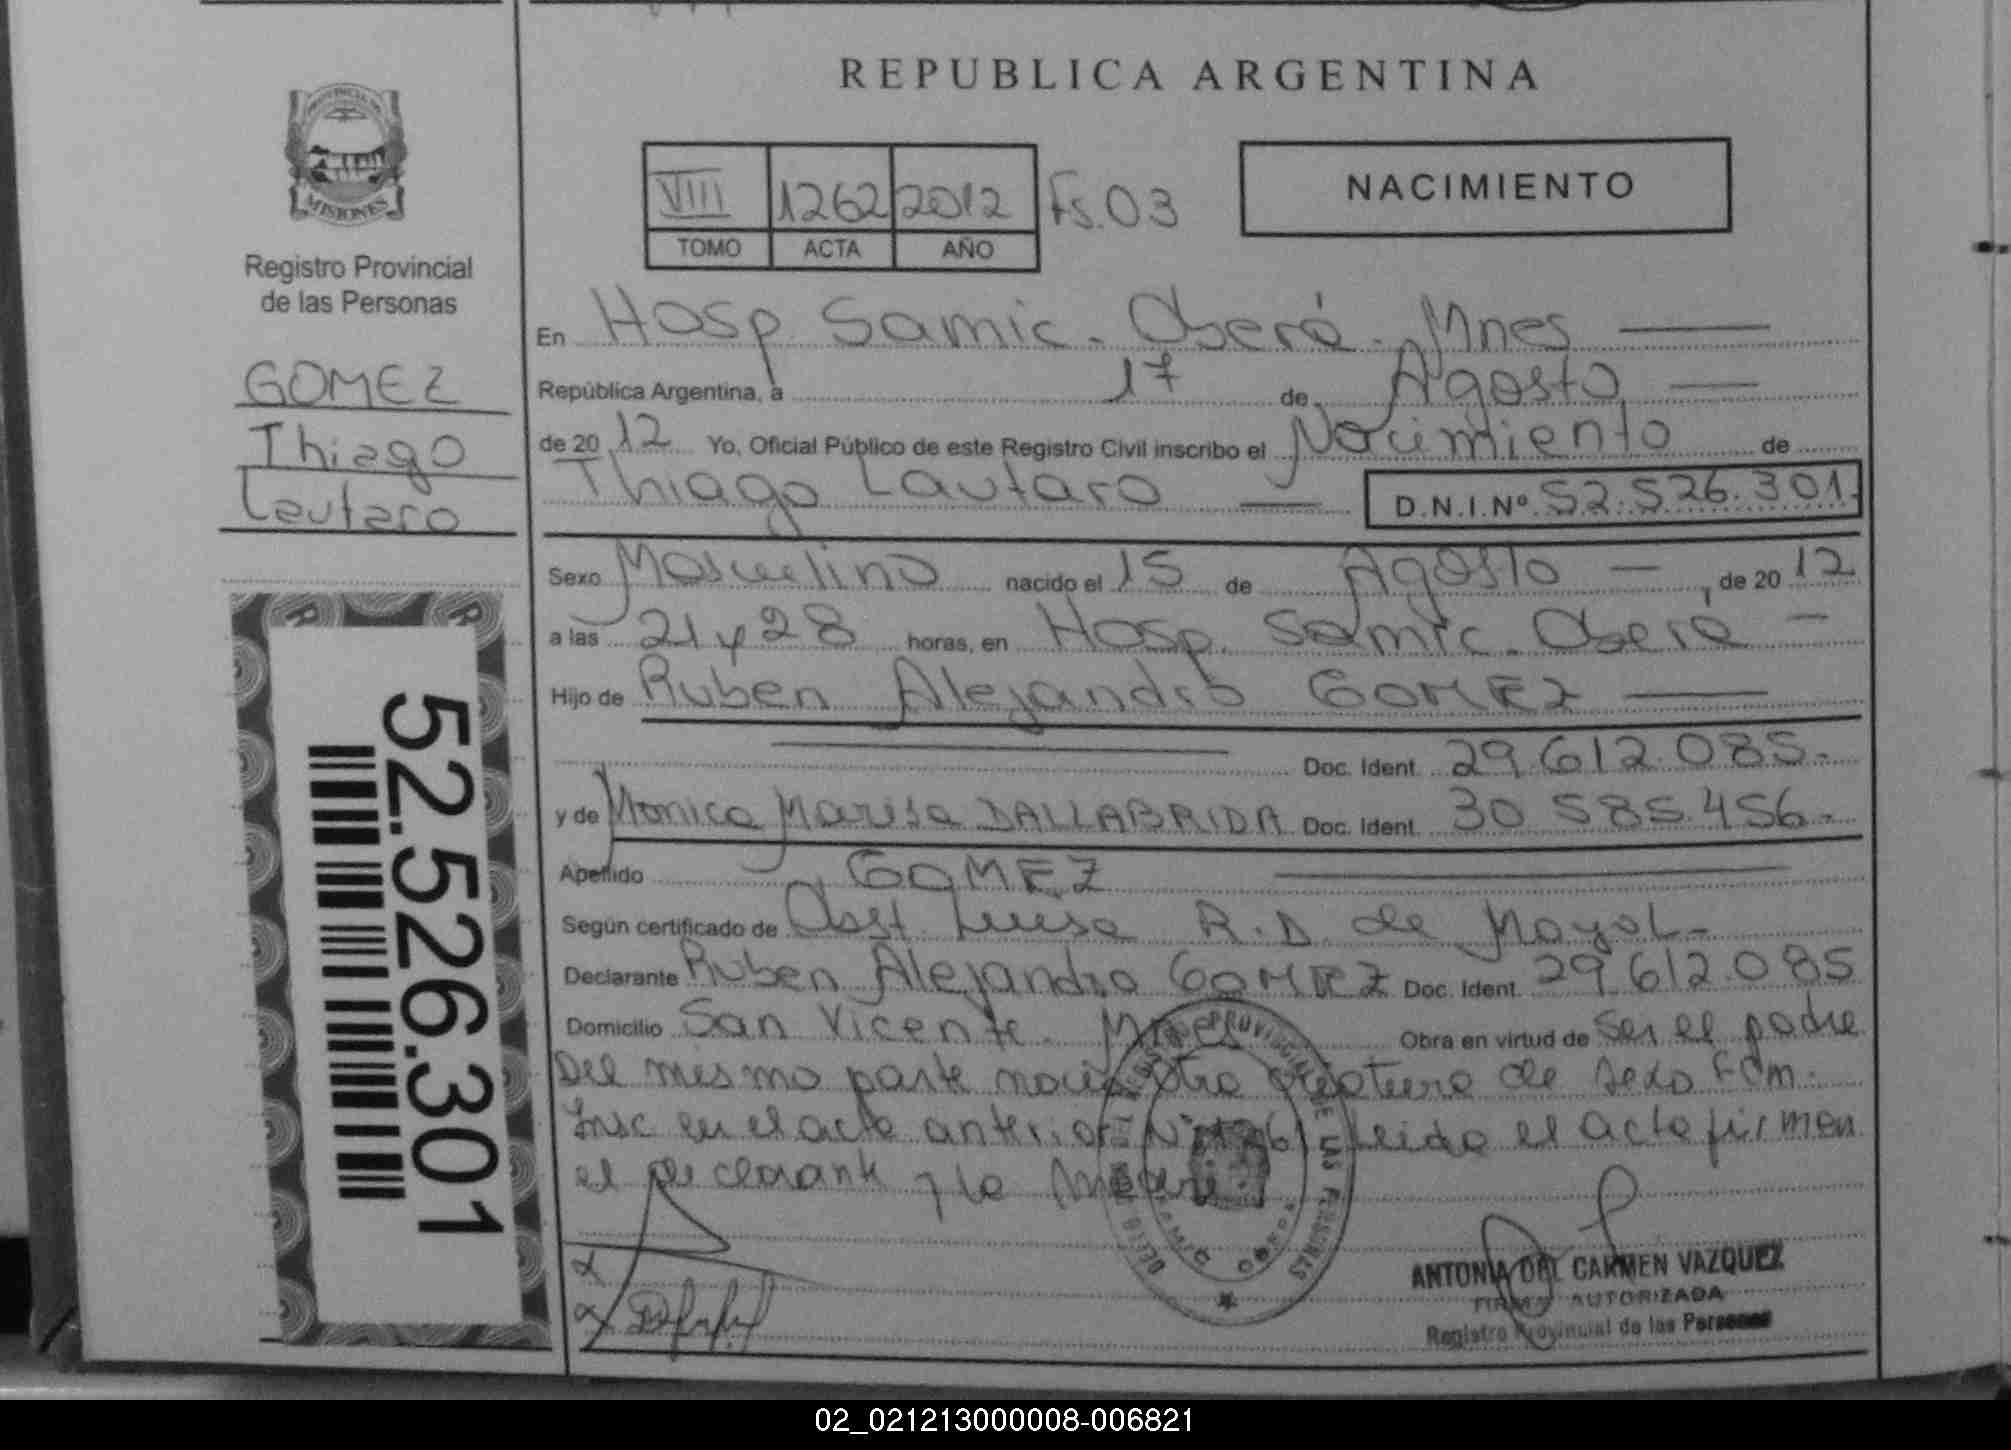 REPUBLICA ARGENTINA
PROVINCIA DE
MISIONES
Registro Provincial
de las Personas
GOMEZ
Thiago
Lautaro
52.526.301
VIII 1262 2012 Fs. 03
TOMO ACTA AÑO
NACIMIENTO
En Hosp Samic. Oberá. Mnes
República Argentina, a 17 de Agosto
de 20 12 Yo, Oficial Público de este Registro Civil inscribo el Nacimiento de
Thiago Lautaro D.N.I.Nº 52.526.301.
Sexo Masculino nacido el 15 de Agosto , de 20 12
a las 21 y 28 horas, en Hosp. Samic. Oberá
Hijo de Ruben Alejandro GOMEZ
Doc. Ident. 29.612.085.
y de Monica Marisa DALLABRIDA Doc. Ident. 30 585.456.
Apellido GOMEZ
Según certificado de Obst. Luisa R.D. de Mayol
Declarante Ruben Alejandro GOMEZ Doc. Ident. 29.612.085
Domicilio San Vicente. Mnes Obra en virtud de ser el padre
Del mismo parte nació otra criatura de sexo Fem.
Insc en el acta anterior Leida el acta firman
el declarante y la Madre
ANTONIA DEL CARMEN VAZQUEZ
FIRMA AUTORIZADA
Registro Provincial de las Personas
02_021213000008-006821